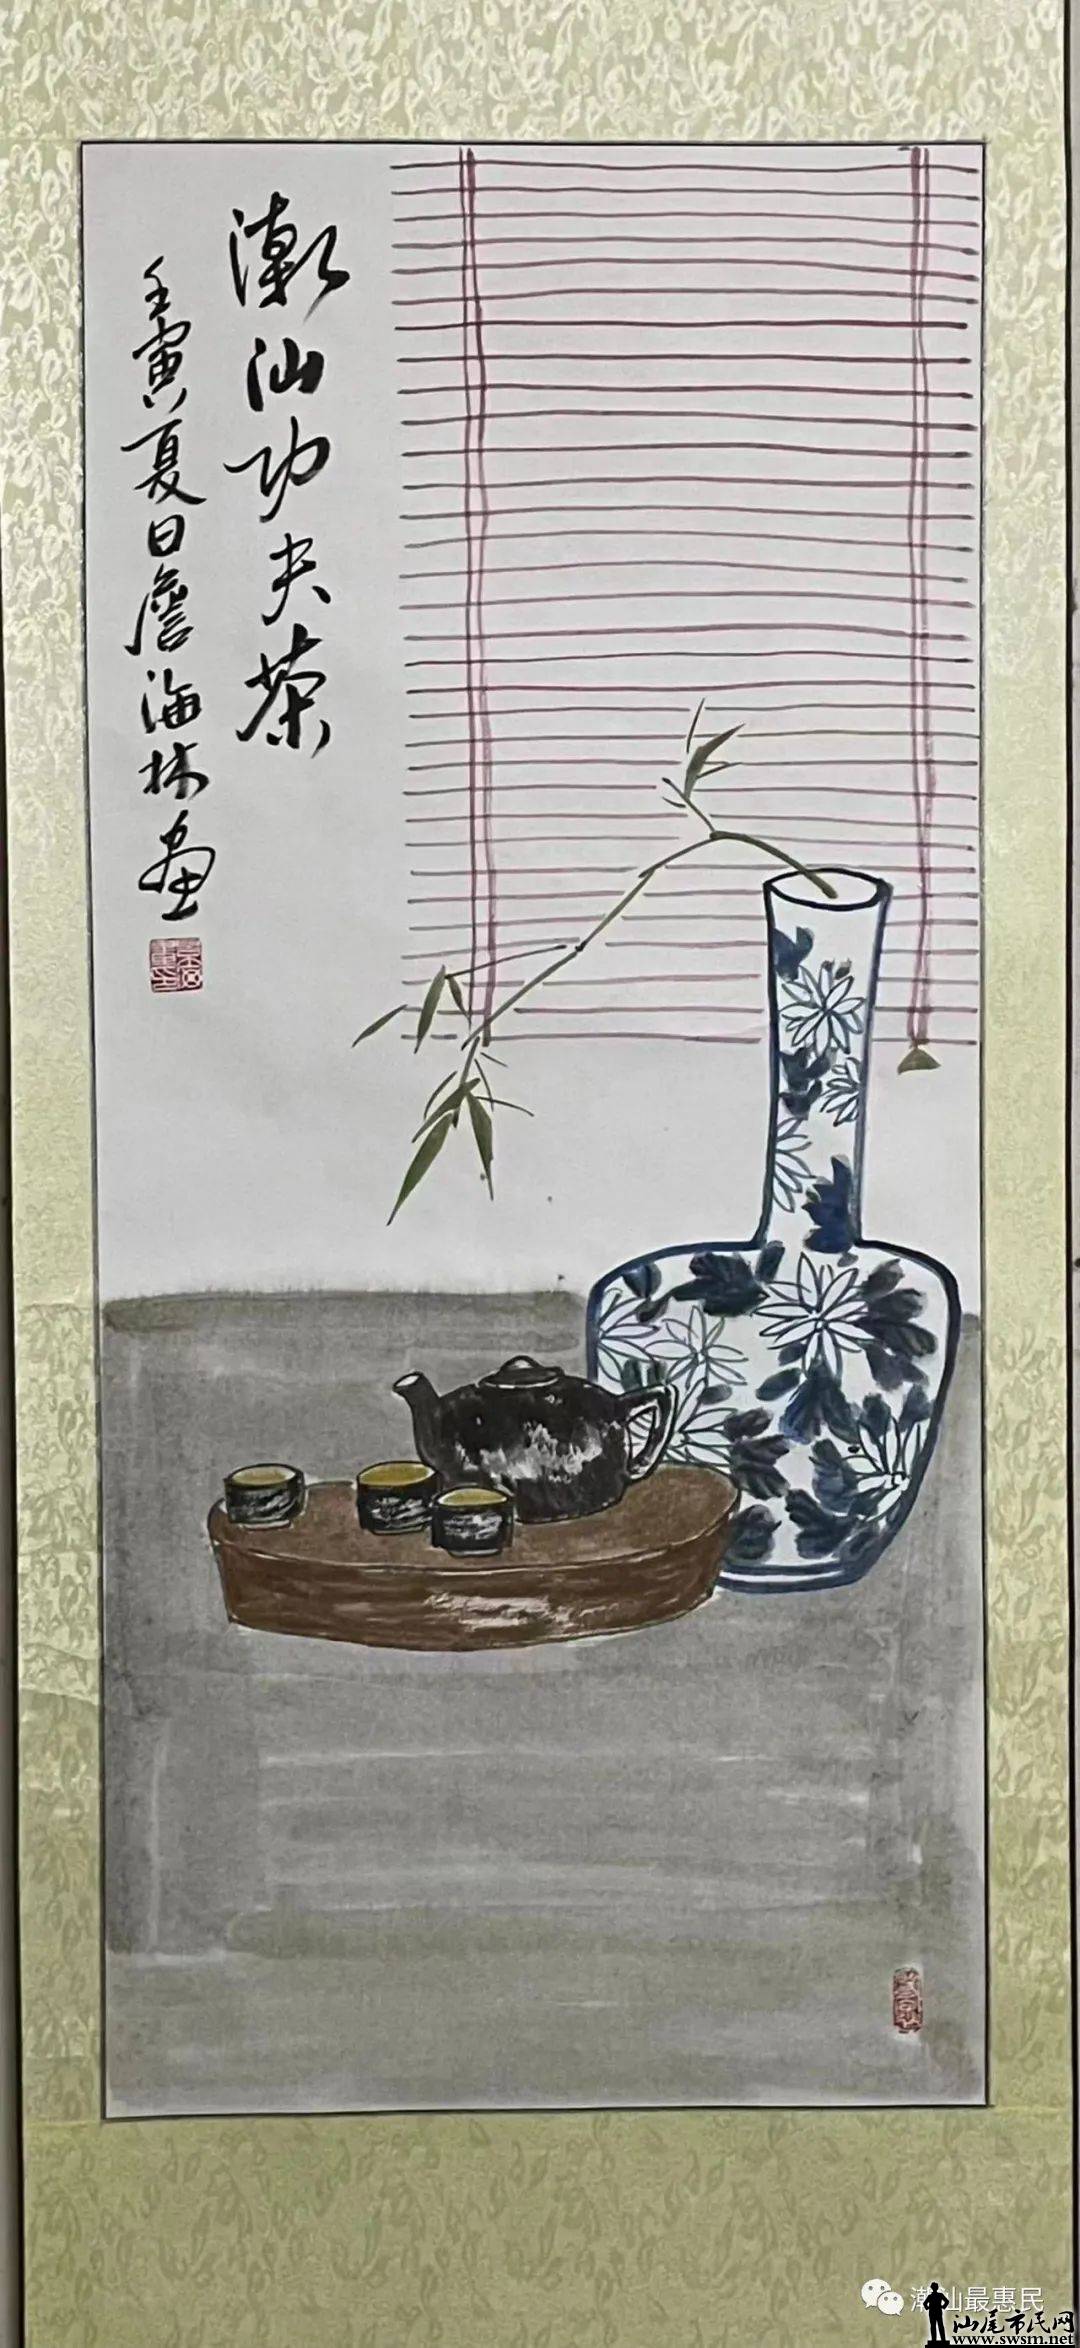 潮汕功夫茶
壬寅夏日詹海林画
潮汕最惠民
汕尾市民网
www.swsm.net